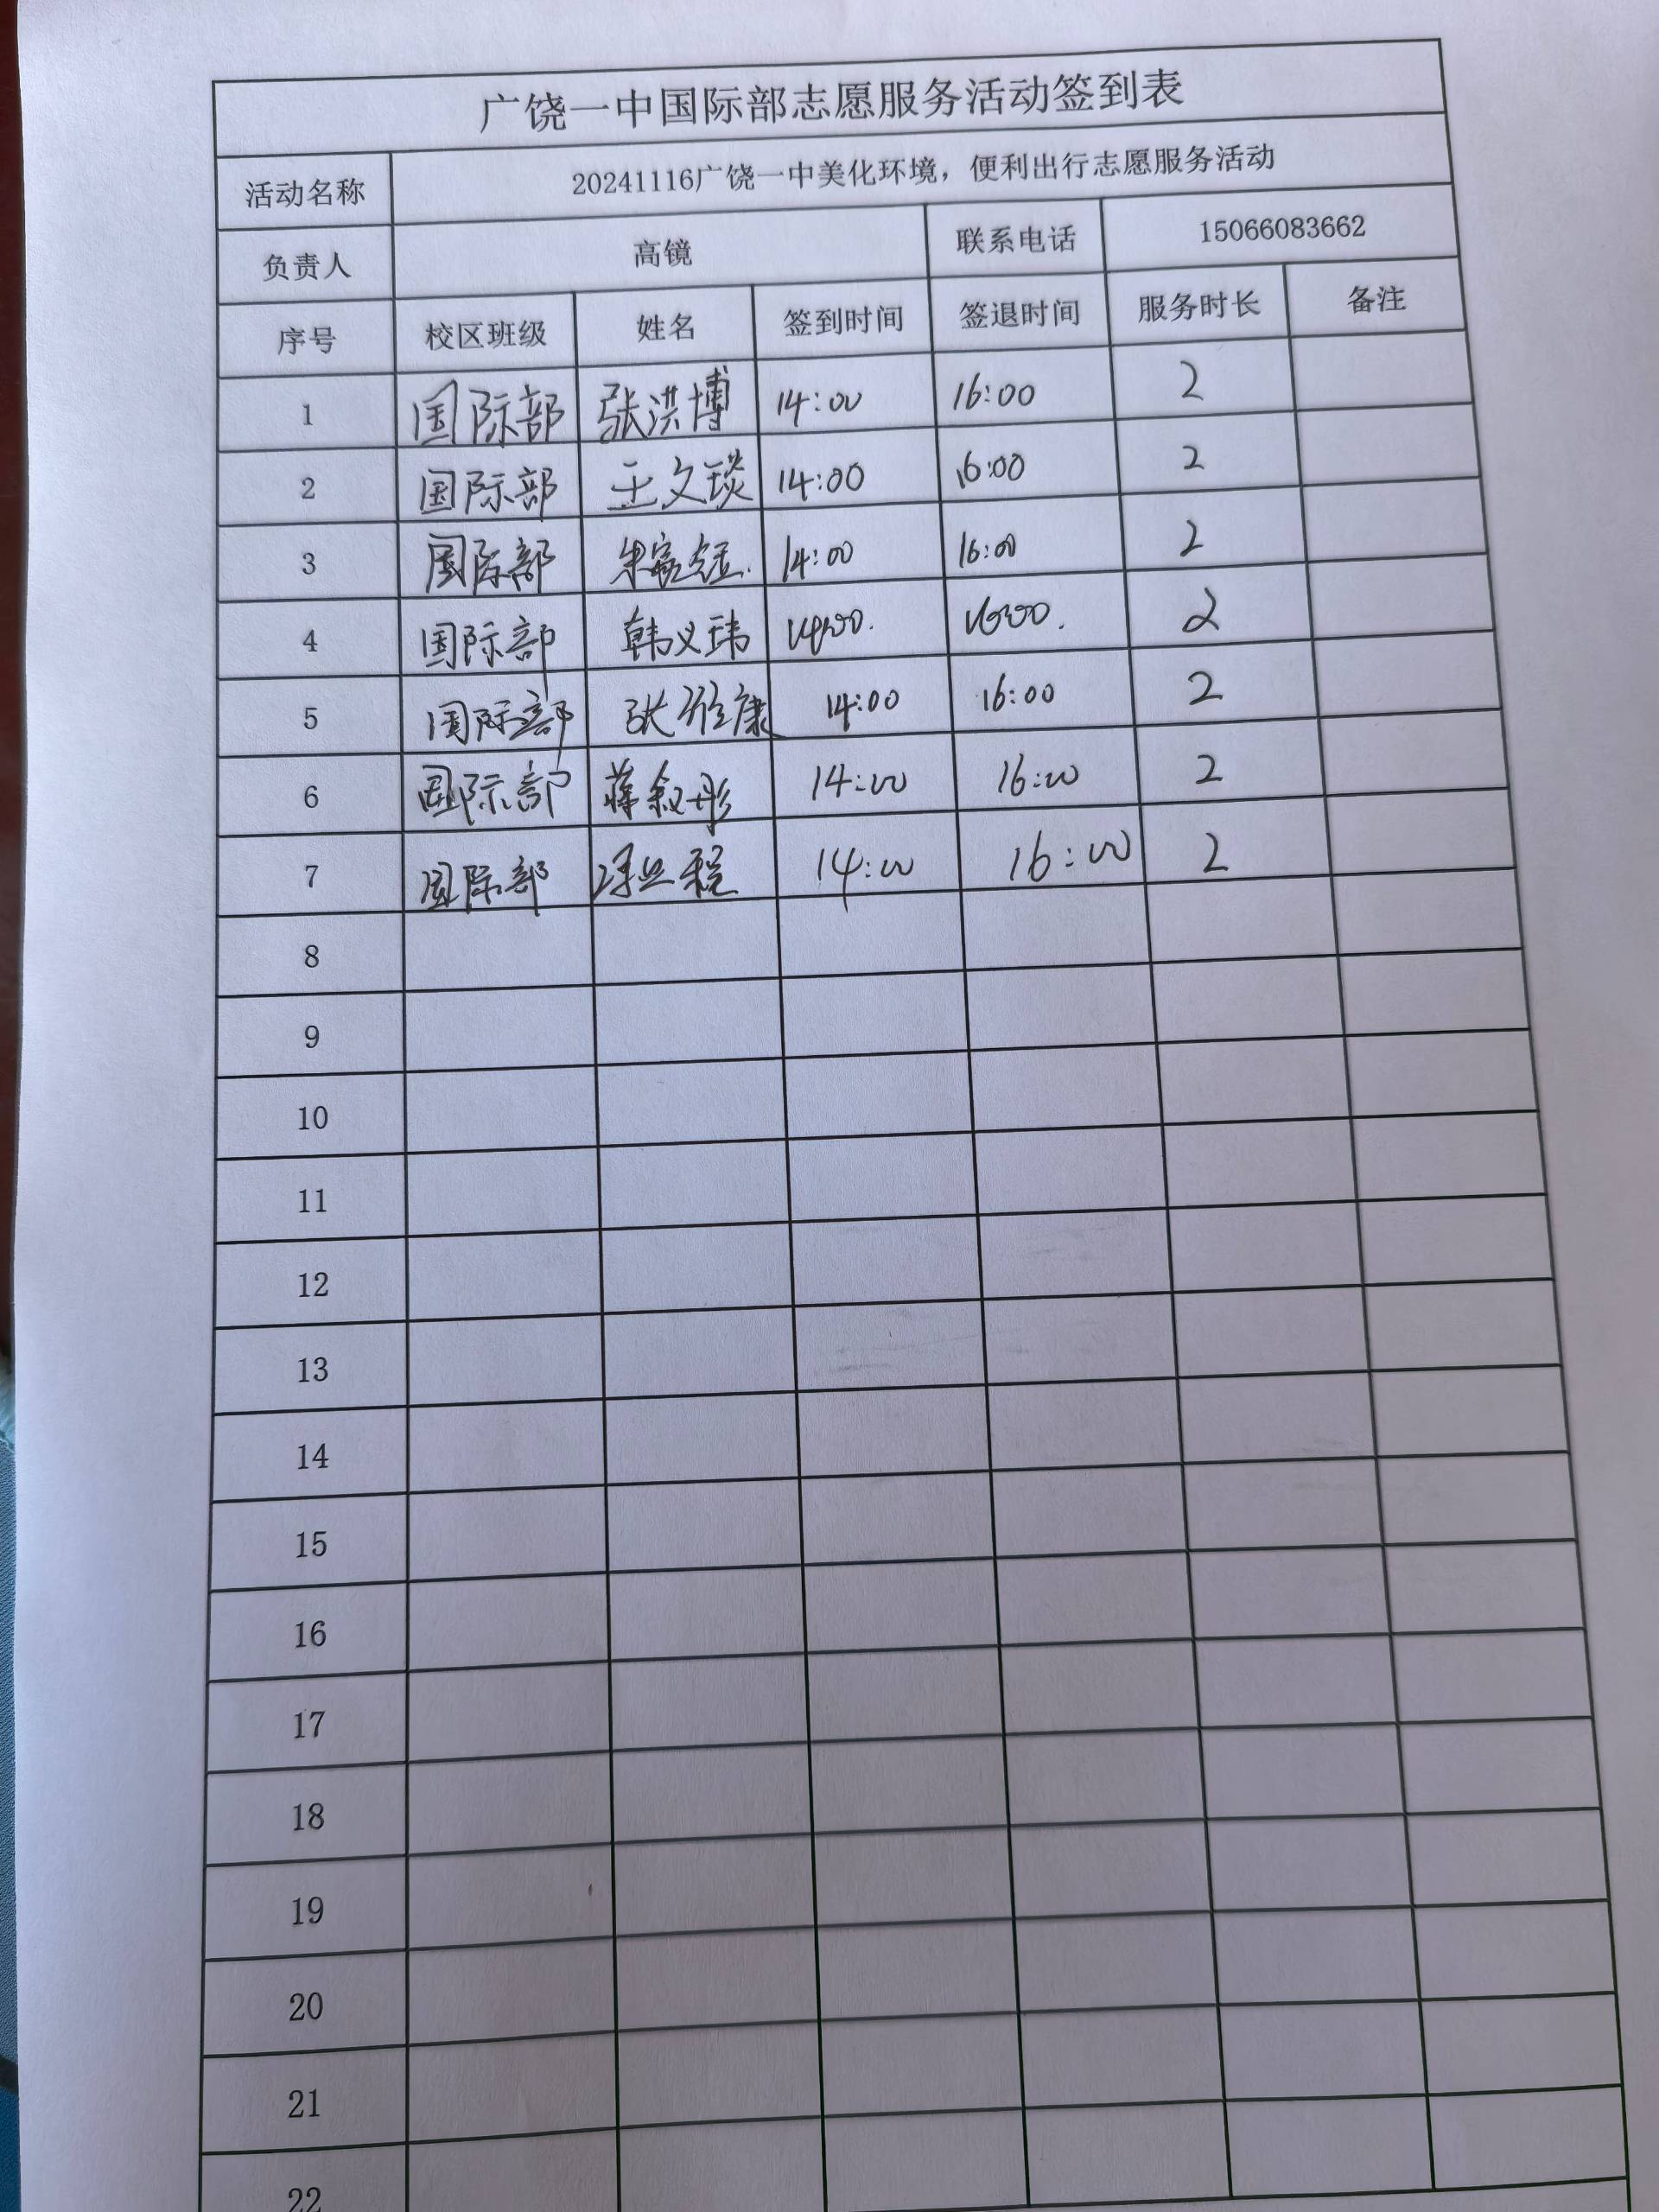 广饶一中国际部志愿服务活动签到表
活动名称 20241116广饶一中美化环境，便利出行志愿服务活动
负责人 高镜 联系电话 15066083662
序号 校区班级 姓名 签到时间 签退时间 服务时长 备注
1 国际部 张洪博 14:00 16:00 2
2 国际部 王文琰 14:00 16:00 2
3 国际部 14:00 16:00 2
4 国际部 韩义玮 14:00. 16:00. 2
5 国际部 张 康 14:00 16:00 2
6 国际部 蒋叙彤 14:00 16:00 2
7 国际部 14:00 16:00 2
8
9
10
11
12
13
14
15
16
17
18
19
20
21
22